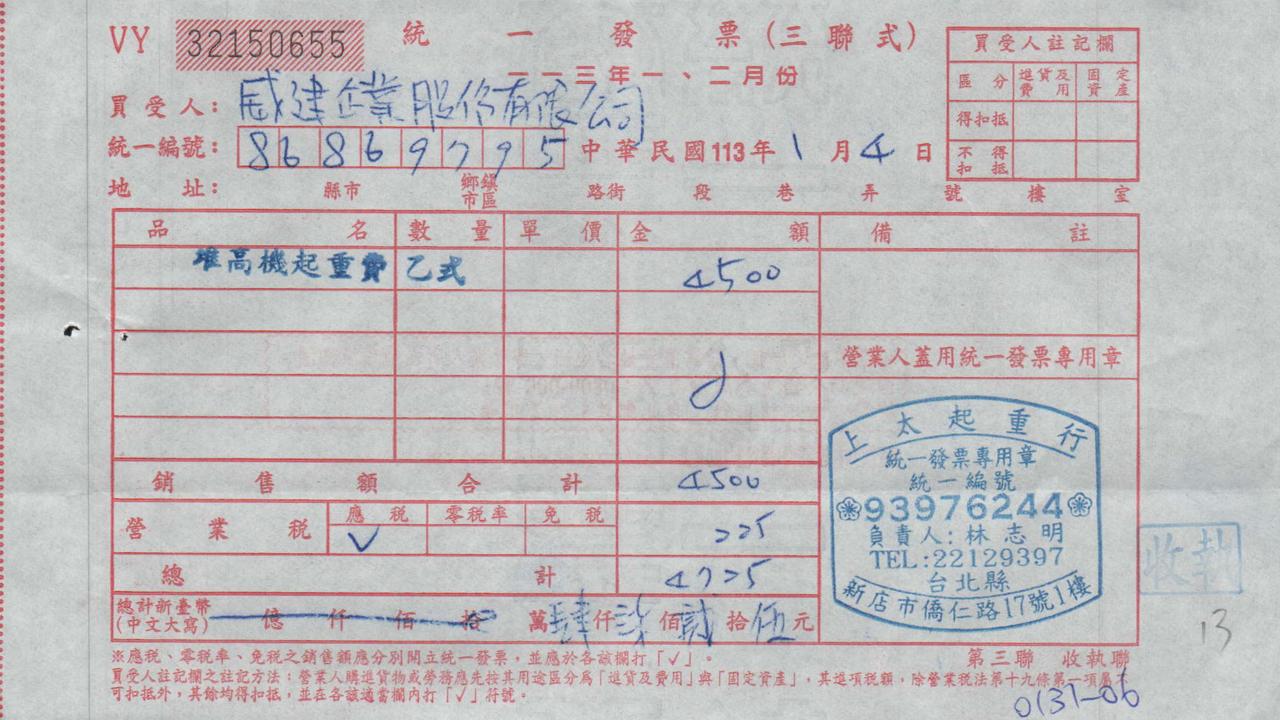 VY 32150655 統一發票(三聯式)
一一三年一、二月份
買受人: 威建企業股份有限公司
統一編號: 86869795 中華民國113年1月4日
地址: 縣市 鄉鎮市區 路街 段 巷 弄 號 樓 室
買受人註記欄
區分 進貨及費用 固定資產
得扣抵
不得扣抵
品名 數量 單價 金額 備註
堆高機起重費 乙式 4500
營業人蓋用統一發票專用章
銷售額合計 4500
營業稅 應稅 零稅率 免稅 225
√
總計 4725
總計新臺幣(中文大寫) 億仟佰拾萬肆仟柒佰貳拾伍元
上太起重行
統一發票專用章
統一編號
93976244
負責人:林志明
TEL:22129397
台北縣
新店市僑仁路17號1樓
收執
13
※應稅、零稅率、免稅之銷售額應分別開立統一發票,並應於各該欄打「√」。
第三聯 收執聯
買受人註記欄之註記方法:營業人購進貨物或勞務應先按其用途區分為「進貨及費用」與「固定資產」,其進項稅額,除營業稅法第十九條第一項屬不
可扣抵外,其餘均得扣抵,並在各該適當欄內打「√」符號。
0131-06